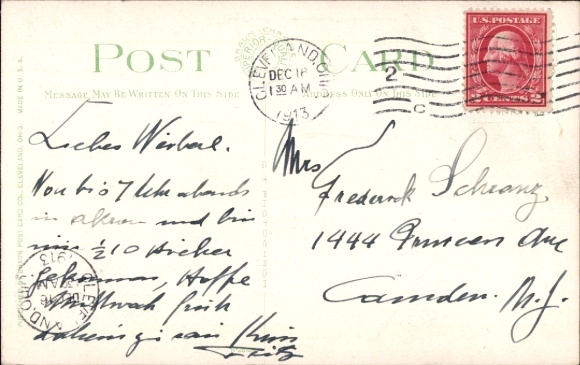 POST CARD
MESSAGE MAY BE WRITTEN ON THIS SIDE
ADDRESS ONLY ON THIS SIDE
MADE IN U.S.A.
POST CARD CO., CLEVELAND, OHIO.
CLEVELAND, OHIO
DEC 16
1 30 AM
1913
2
C
U.S. POSTAGE
2 CENTS 2
Liebes Weiberl.
Von bis 7 Uhr abends
in akron und bin
um ½ 10 hieher
gekommen, Hoffe
Mittwoch früh
zu sein
Fritz
Mrs
Frederick Schwanz
1444 Ave
Camden. N. J.
CLEVELAND, OHIO
DEC 16
AM
1913